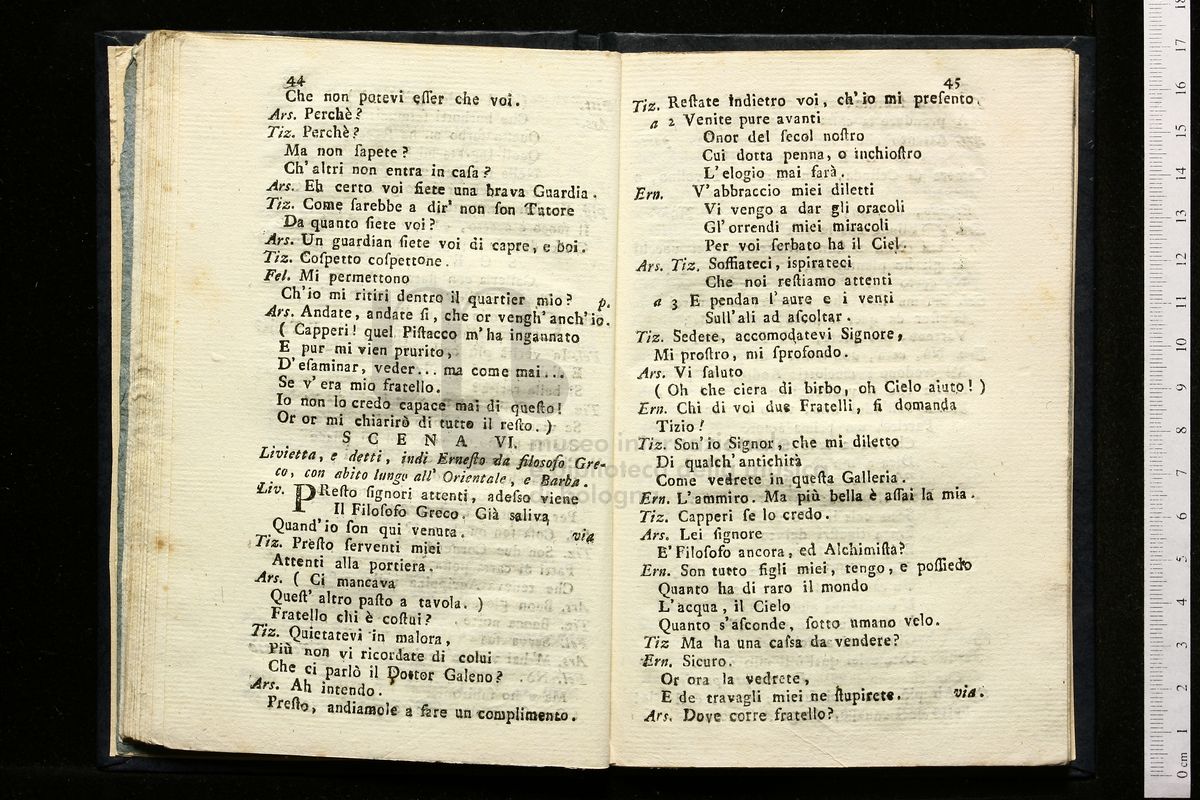 44
Che non potevi eſſer che voi.
Ars. Perchè?
Tiz. Perchè?
Ma non ſapete?
Ch'altri non entra in caſa?
Ars. Eh certo voi ſiete una brava Guardia.
Tiz. Come ſarebbe a dir' non ſon Tutore
Da quanto ſiete voi?
Ars. Un guardian ſiete voi di capre, e boi.
Tiz. Coſpetto coſpettone.
Fel. Mi permettono
Ch'io mi ritiri dentro il quartier mio? p.
Ars. Andate, andate ſi, che or vengh'anch'io.
( Capperi! quel Piſtacco m'ha ingannato
E pur mi vien prurito,
D'eſaminar, veder... ma come mai...
Se v'era mio fratello.
Io non lo credo capace mai di queſto!
Or or mi chiarirò di tutto il reſto. )
SCENA VI.
Livietta, e detti, indi Erneſto da filoſofo Gre-
co, con abito lungo all' Orientale, e Barba.
Liv. PReſto ſignori attenti, adeſso viene
Il Filoſofo Greco. Già saliva
Quand'io ſon qui venuta. via
Tiz. Preſto ſerventi miei
Attenti alla portiera.
Ars. ( Ci mancava
Queſt' altro paſto a tavola. )
Fratello chi è coſtui?
Tiz. Quietatevi in malora,
Più non vi ricordate di colui
Che ci parlò il Dottor Galeno?
Ars. Ah intendo.
Preſto, andiamole a fare un complimento.
45
Tiz. Reſtate indietro voi, ch'io mi preſento.
a 2 Venite pure avanti
Onor del ſecol noſtro
Cui dotta penna, o inchioſtro
L'elogio mai farà.
Ern. V'abbraccio miei diletti
Vi vengo a dar gli oracoli
Gl'orrendi miei miracoli
Per voi ſerbato ha il Ciel.
Ars. Tiz. Soffiateci, ispirateci
Che noi reſtiamo attenti
a 3 E pendan l'aure e i venti
Sull'ali ad aſcoltar.
Tiz. Sedete, accomodatevi Signore,
Mi proſtro, mi ſprofondo.
Ars. Vi ſaluto
( Oh che ciera di birbo, oh Cielo aiuto! )
Ern. Chi di voi due Fratelli, ſi domanda
Tizio!
Tiz. Son'io Signor, che mi diletto
Di qualch'antichità
Come vedrete in queſta Galleria.
Ern. L'ammiro. Ma più bella è aſſai la mia.
Tiz. Capperi ſe lo credo.
Ars. Lei ſignore
E' Filoſofo ancora, ed Alchimiſta?
Ern. Son tutto figli miei, tengo, e poſſiedo
Quanto ha di raro il mondo
L'acqua, il Cielo
Quanto s'aſconde, ſotto umano velo.
Tiz Ma ha una caſsa da vendere?
Ern. Sicuro.
Or ora la vedrete,
E de travagli miei ne ſtupirete. via.
Ars. Dove corre fratello?